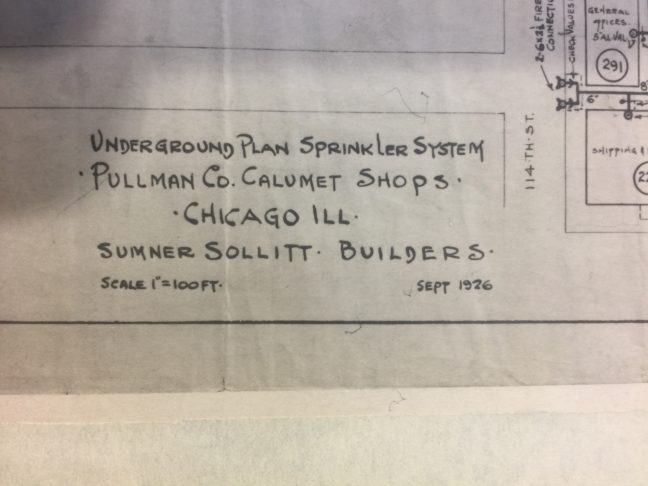 UNDERGROUND PLAN SPRINKLER SYSTEM
· PULLMAN CO. CALUMET SHOPS ·
· CHICAGO ILL ·
SUMNER SOLLITT · BUILDERS ·
SCALE 1"=100FT.
SEPT 1926
114 TH. ST.
CHECK VALVES
GENERAL
OFFICES.
291
6"
SHIPPING